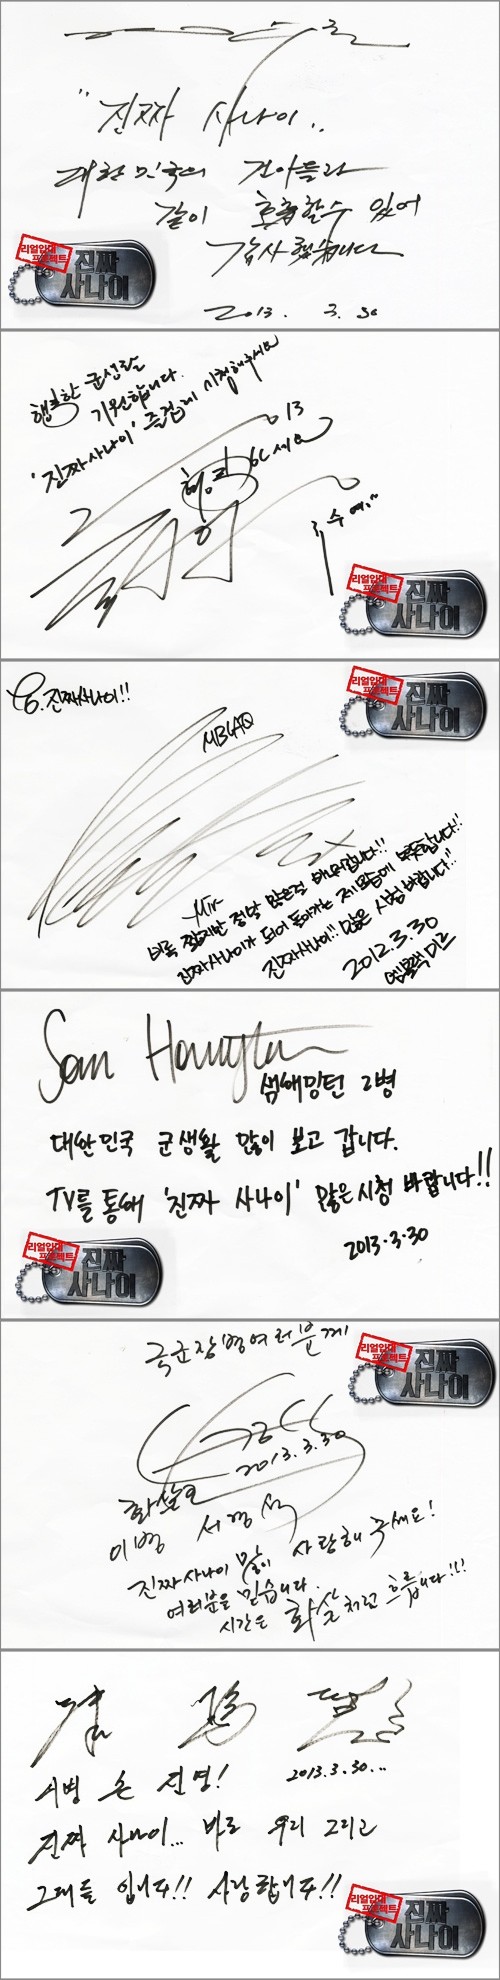 "진짜 사나이..
대한민국의 건아들과
같이 호흡할수 있어
감사했습니다
2013. 3. 30
리얼입대
프로젝트
진짜
사나이
행복한 군생활
기원합니다.
'진짜 사나이' 즐겁게 시청해주세요
2013
수여..
리얼입대
프로젝트
진짜
사나이
진짜사나이!!
MBLAQ
리얼입대
프로젝트
진짜
사나이
Mir
비록 짧지만 정말 많은걸 배워갑니다!!
진짜사나이가 되어 돌아가는 제모습에 뿌듯합니다!!
진짜사나이!! 많은 시청 바랍니다!!
2012.3.30
엠블랙 미르
Sam Hamington
샘해밍턴 2병
대한민국 군생활 많이 보고 갑니다.
TV를 통해 '진짜 사나이' 많은 시청 바랍니다!!
2013.3.30
리얼입대
프로젝트
진짜
사나이
국군장병여러분께
리얼입대
프로젝트
진짜
사나이
2013.3.30
화살인
이병 서경석
진짜사나이 많이 사랑해 주세요!
여러분을 믿습니다.
시간은 화살처럼 흐릅니다!!!
2013.3.30...
진짜 사나이... 바로 우리 그리고
그대들 입니다!! 사랑합니다!!
리얼입대
프로젝트
진짜
사나이